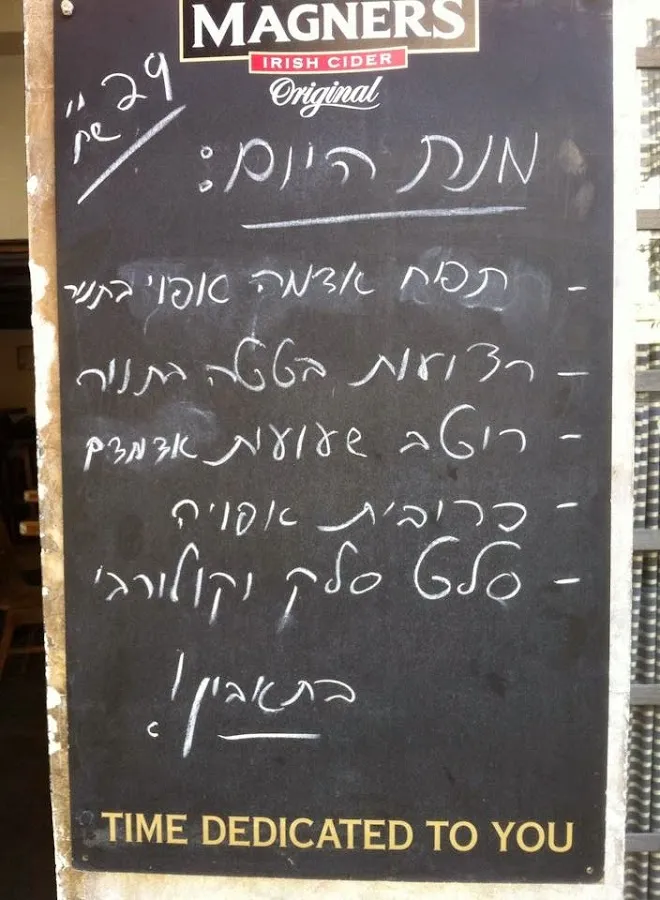 MAGNERS
IRISH CIDER
Original
29 ש״ח
מנת היום:
- תפוח אדמה אפוי בתנור
- רצועות בטטה בתנור
- רוטב שעועית אדמדם
- כרובית אפויה
- סלט סלק וקולורבי
בתאבון!
TIME DEDICATED TO YOU